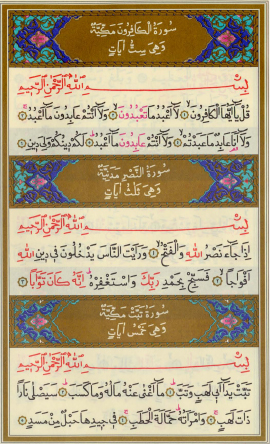 سُورَةُ الْكَافِرُونَ مَكِّيَّةٌ
وَهِىَ سِتُّ اٰيَاتٍ
بِسْمِ اللهِ الرَّحْمٰنِ الرَّحِيمِ
قُلْ يَآ اَيُّهَا الْكَافِرُونَ ۝ لَآ اَعْبُدُ مَا تَعْبُدُونَ ۝ وَلَآ اَنْتُمْ عَابِدُونَ مَآ اَعْبُدُ ۝
وَلَآ اَنَا۬ عَابِدٌ مَا عَبَدْتُمْ ۝ وَلَآ اَنْتُمْ عَابِدُونَ مَآ اَعْبُدُ ۝ لَكُمْ دِينُكُمْ وَلِىَ دِينِ ۝
سُورَةُ النَّصْرِ مَدَنِيَّةٌ
وَهِىَ ثَلٰثُ اٰيَاتٍ
بِسْمِ اللهِ الرَّحْمٰنِ الرَّحِيمِ
اِذَا جَآءَ نَصْرُ اللهِ وَالْفَتْحُ ۝ وَرَاَيْتَ النَّاسَ يَدْخُلُونَ فِى دِينِ اللهِ
اَفْوَاجًا ۝ فَسَبِّحْ بِحَمْدِ رَبِّكَ وَاسْتَغْفِرْهُ اِنَّهُ كَانَ تَوَّابًا ۝
سُورَةُ تَبَّتْ مَكِّيَّةٌ
وَهِىَ خَمْسُ اٰيَاتٍ
بِسْمِ اللهِ الرَّحْمٰنِ الرَّحِيمِ
تَبَّتْ يَدَآ اَبِى لَهَبٍ وَتَبَّ ۝ مَآ اَغْنٰى عَنْهُ مَالُهُ وَمَا كَسَبَ ۝ سَيَصْلٰى نَارًا
ذَاتَ لَهَبٍ ۝ وَامْرَاَتُهُ حَمَّالَةَ الْحَطَبِ ۝ فِى جِيدِهَا حَبْلٌ مِنْ مَسَدٍ ۝